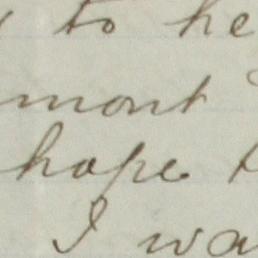 to he
mont
hope t
I wa